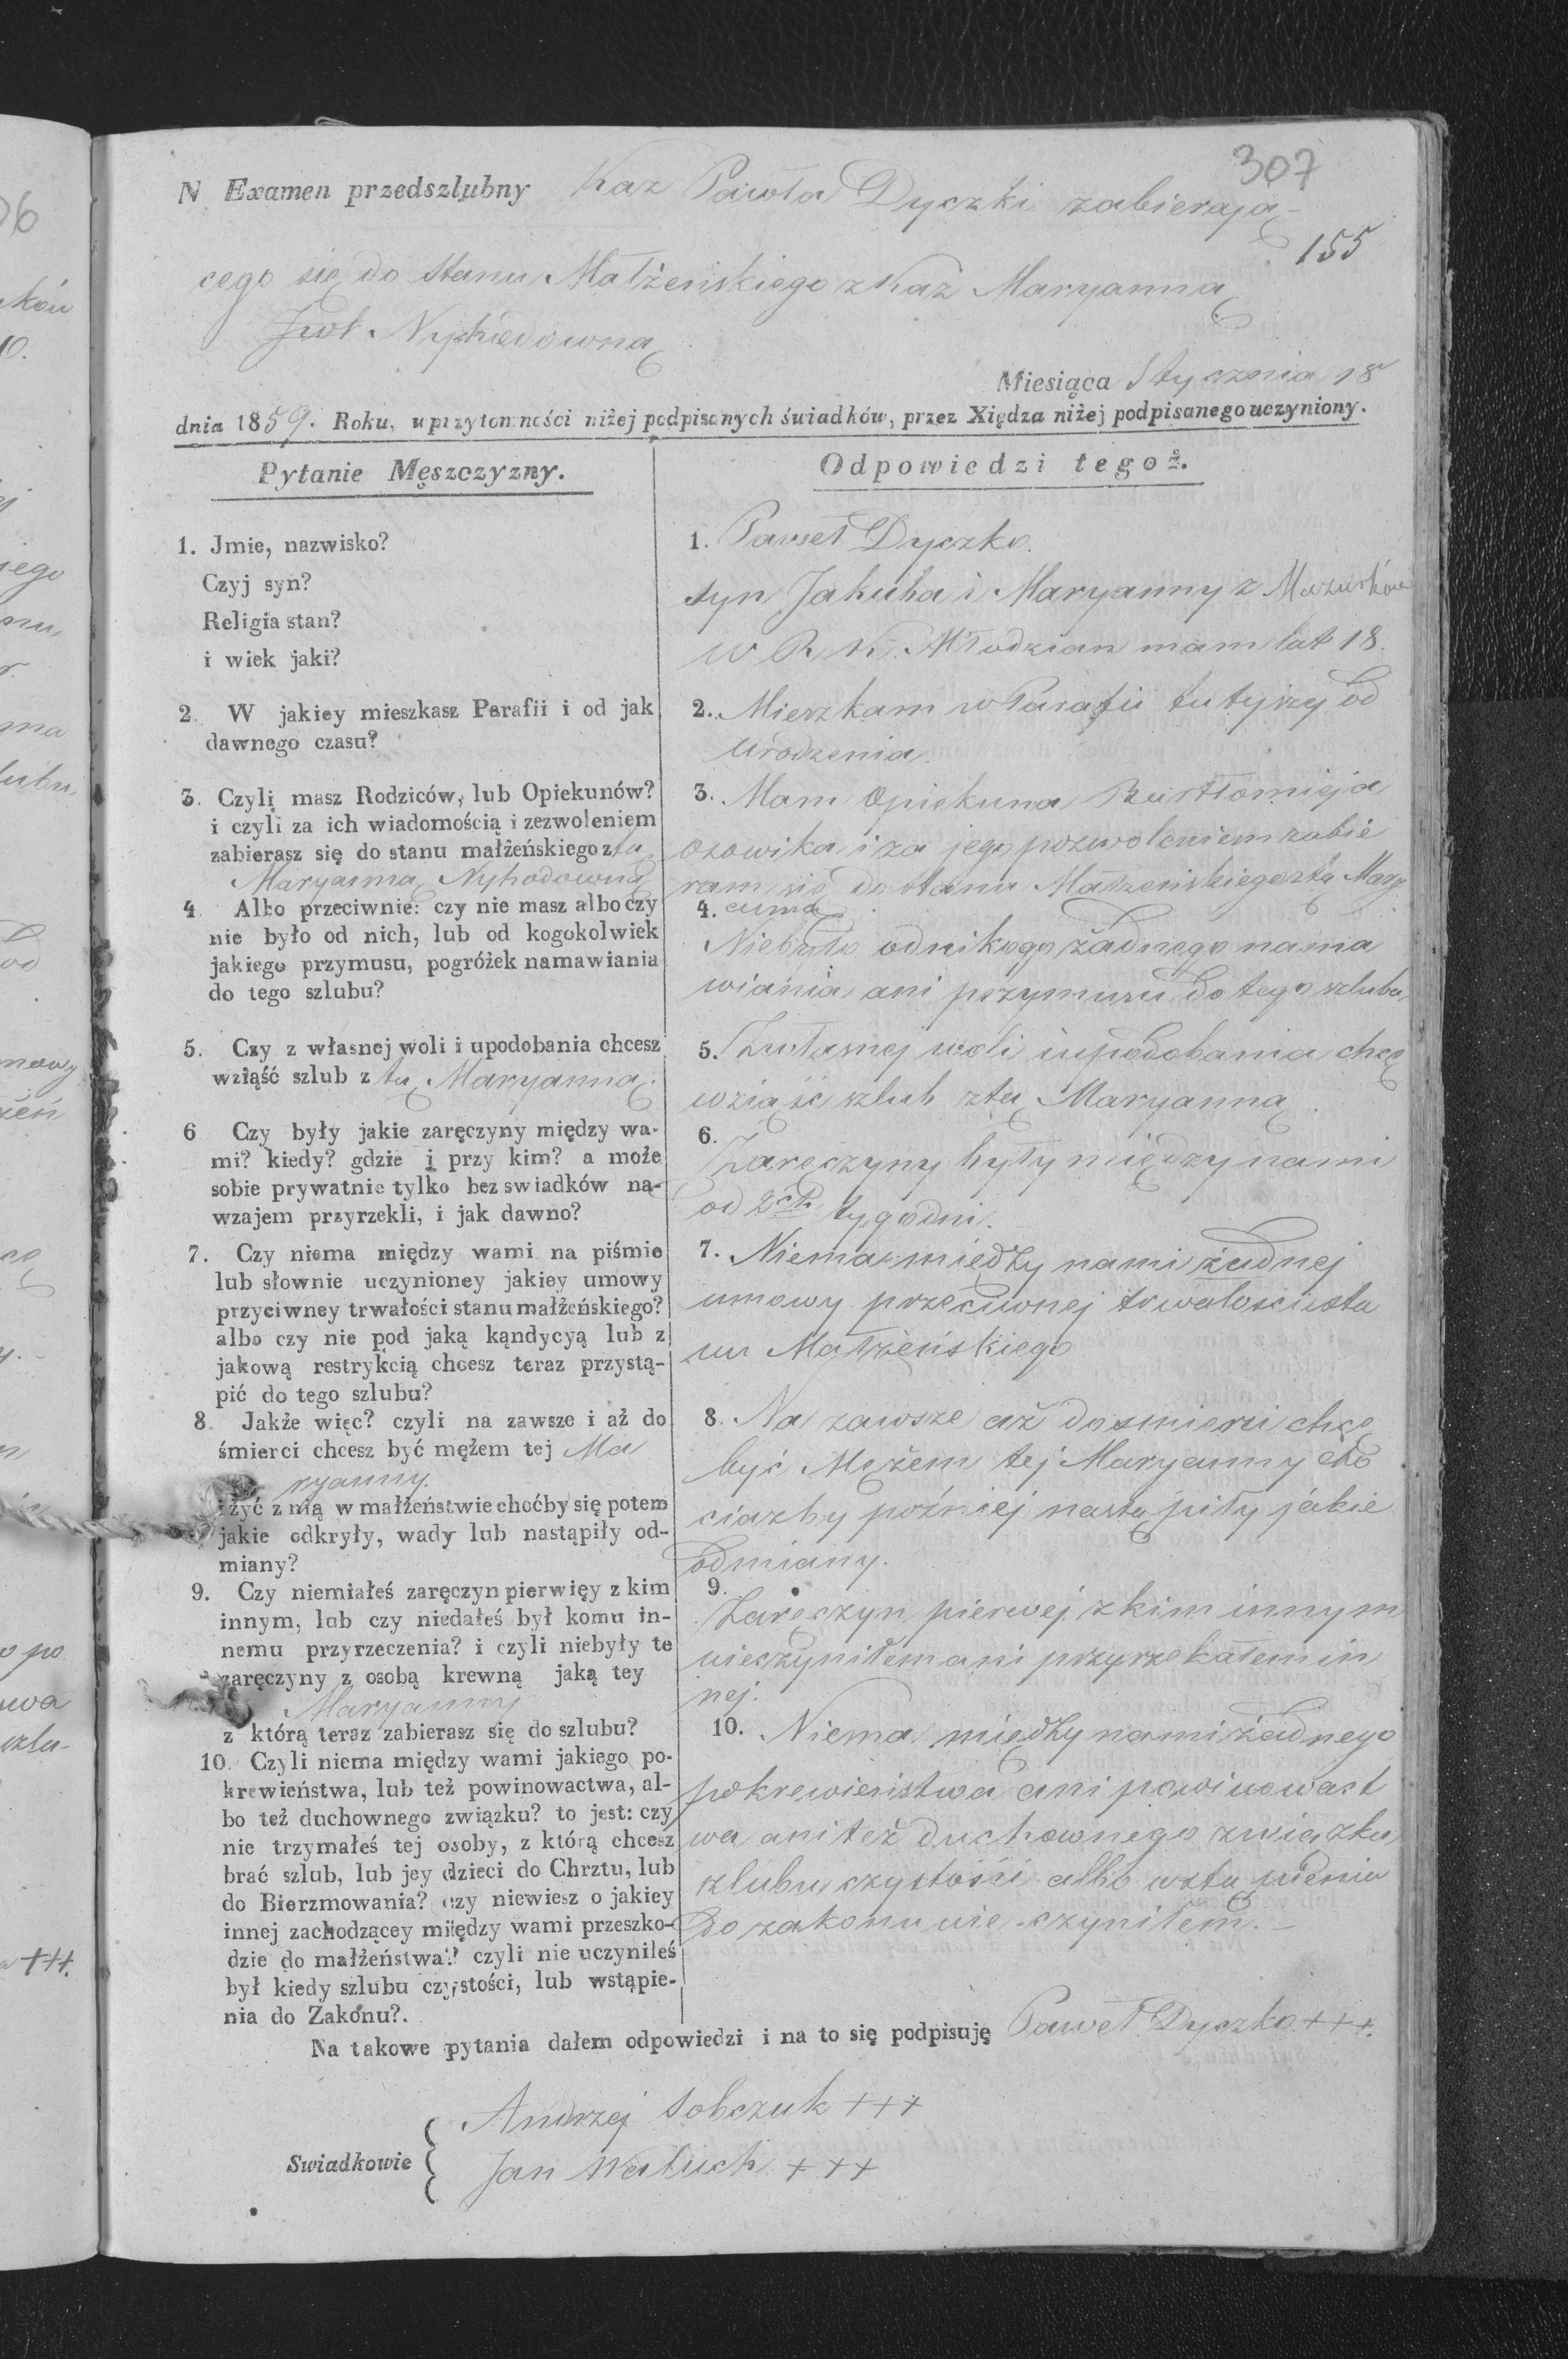 307
N Examen przedszlubny Kaz Pawła Dyczki zabierają-
155
cego się do stanu Małżeńskiego z Kaz Maryanną
Miesiąca Stycznia 18
dnia 1859. Roku, w przytomności niżej podpisanych świadków, przez Xiędza niżej podpisanego uczyniony.
Pytanie Męszczyzny.
Odpowiedzi tegoż.
1. Jmie, nazwisko?
Czyj syn?
Religia stan?
i wiek jaki?
2. W jakiey mieszkasz Parafii i od jak
dawnego czasu?
3. Czyli masz Rodziców, lub Opiekunów?
i czyli za ich wiadomością i zezwoleniem
zabierasz się do stanu małżeńskiego z tą
Maryanną Nyhodowną
4. Albo przeciwnie: czy nie masz albo czy
nie było od nich, lub od kogokolwiek
jakiego przymusu, pogróżek namawiania
do tego szlubu?
5. Czy z własnej woli i upodobania chcesz
wziąść szlub z tą Maryanną.
6 Czy były jakie zaręczyny między wa-
mi? kiedy? gdzie i przy kim? a może
sobie prywatnie tylko bez swiadków na-
wzajem przyrzekli, i jak dawno?
7. Czy niema między wami na piśmie
lub słownie uczynioney jakiey umowy
przyciwney trwałości stanu małżeńskiego?
albo czy nie pod jaką kąndycyą lub z
jakową restrykcią chcesz teraz przystą-
pić do tego szlubu?
8. Jakże więc? czyli na zawsze i aż do
śmierci chcesz być mężem tej Ma
ryanny.
i żyć z nią w małżeństwie choćby się potem
jakie odkryły, wady lub nastąpiły od-
miany?
9. Czy niemiałeś zaręczyn pierwięy z kim
innym, lub czy niedałeś był komu in-
nemu przyrzeczenia? i czyli niebyły te
zaręczyny z osobą krewną jaką tey
Maryanny
z którą teraz zabierasz się do szlubu?
10. Czyli niema między wami jakiego po-
krewieństwa, lub też powinowactwa, al-
bo też duchownego związku? to jest: czy
nie trzymałeś tej osoby, z którą chcesz
brać szlub, lub jey dzieci do Chrztu, lub
do Bierzmowania? czy niewiesz o jakiey
innej zachodzącey między wami przeszko-
dzie do małżeństwa? czyli nie uczyniłeś
był kiedy szlubu czystości, lub wstąpie-
nia do Zakonu?.
1. Paweł Dyczko.
syn Jakuba i Maryanny z Mazurków
w R. K. Młodzian mam lat 18.
2. Mieszkam w Parafii tutyjszy od
urodzenia.
3. Mam Opiekuna Bartłomieja
Osowika i za jego pozwoleniem zabie
ram się do stanu Małżeńskiego z tą Mary
4. anną
Niebyło od nikogo żadnego nama
wiania ani przymusu do tego szlubu
5. Z własnej woli i upodobania chcę
wziąść szlub z tą Maryanną.
6.
Zaręczyny były między nami
od 2ch tygodni.
7. Niema między nami żadnej
umowy przeciwnej trwałości sta
nu Małżeńskiego
8. Na zawsze aż do smierci chcę
być Mężem tej Maryanny cho
ciażby później nastąpiły jakie
odmiany.
9.
Zaręczyn pierwej z kim innym
nieczyniłem ani przyrzekałem in
nej.
10. Niema między nami żadnego
pokrewieństwa ani powinowact
wa ani też duchownego związku
szlubu czystości albo wstąpienia
do zakonu nie czyniłem.-
Na takowe pytania dałem odpowiedzi i na to się podpisuję Paweł Dyczko +++.
Andrzej Sobczuk +++
Swiadkowie
Jan Waluch +++